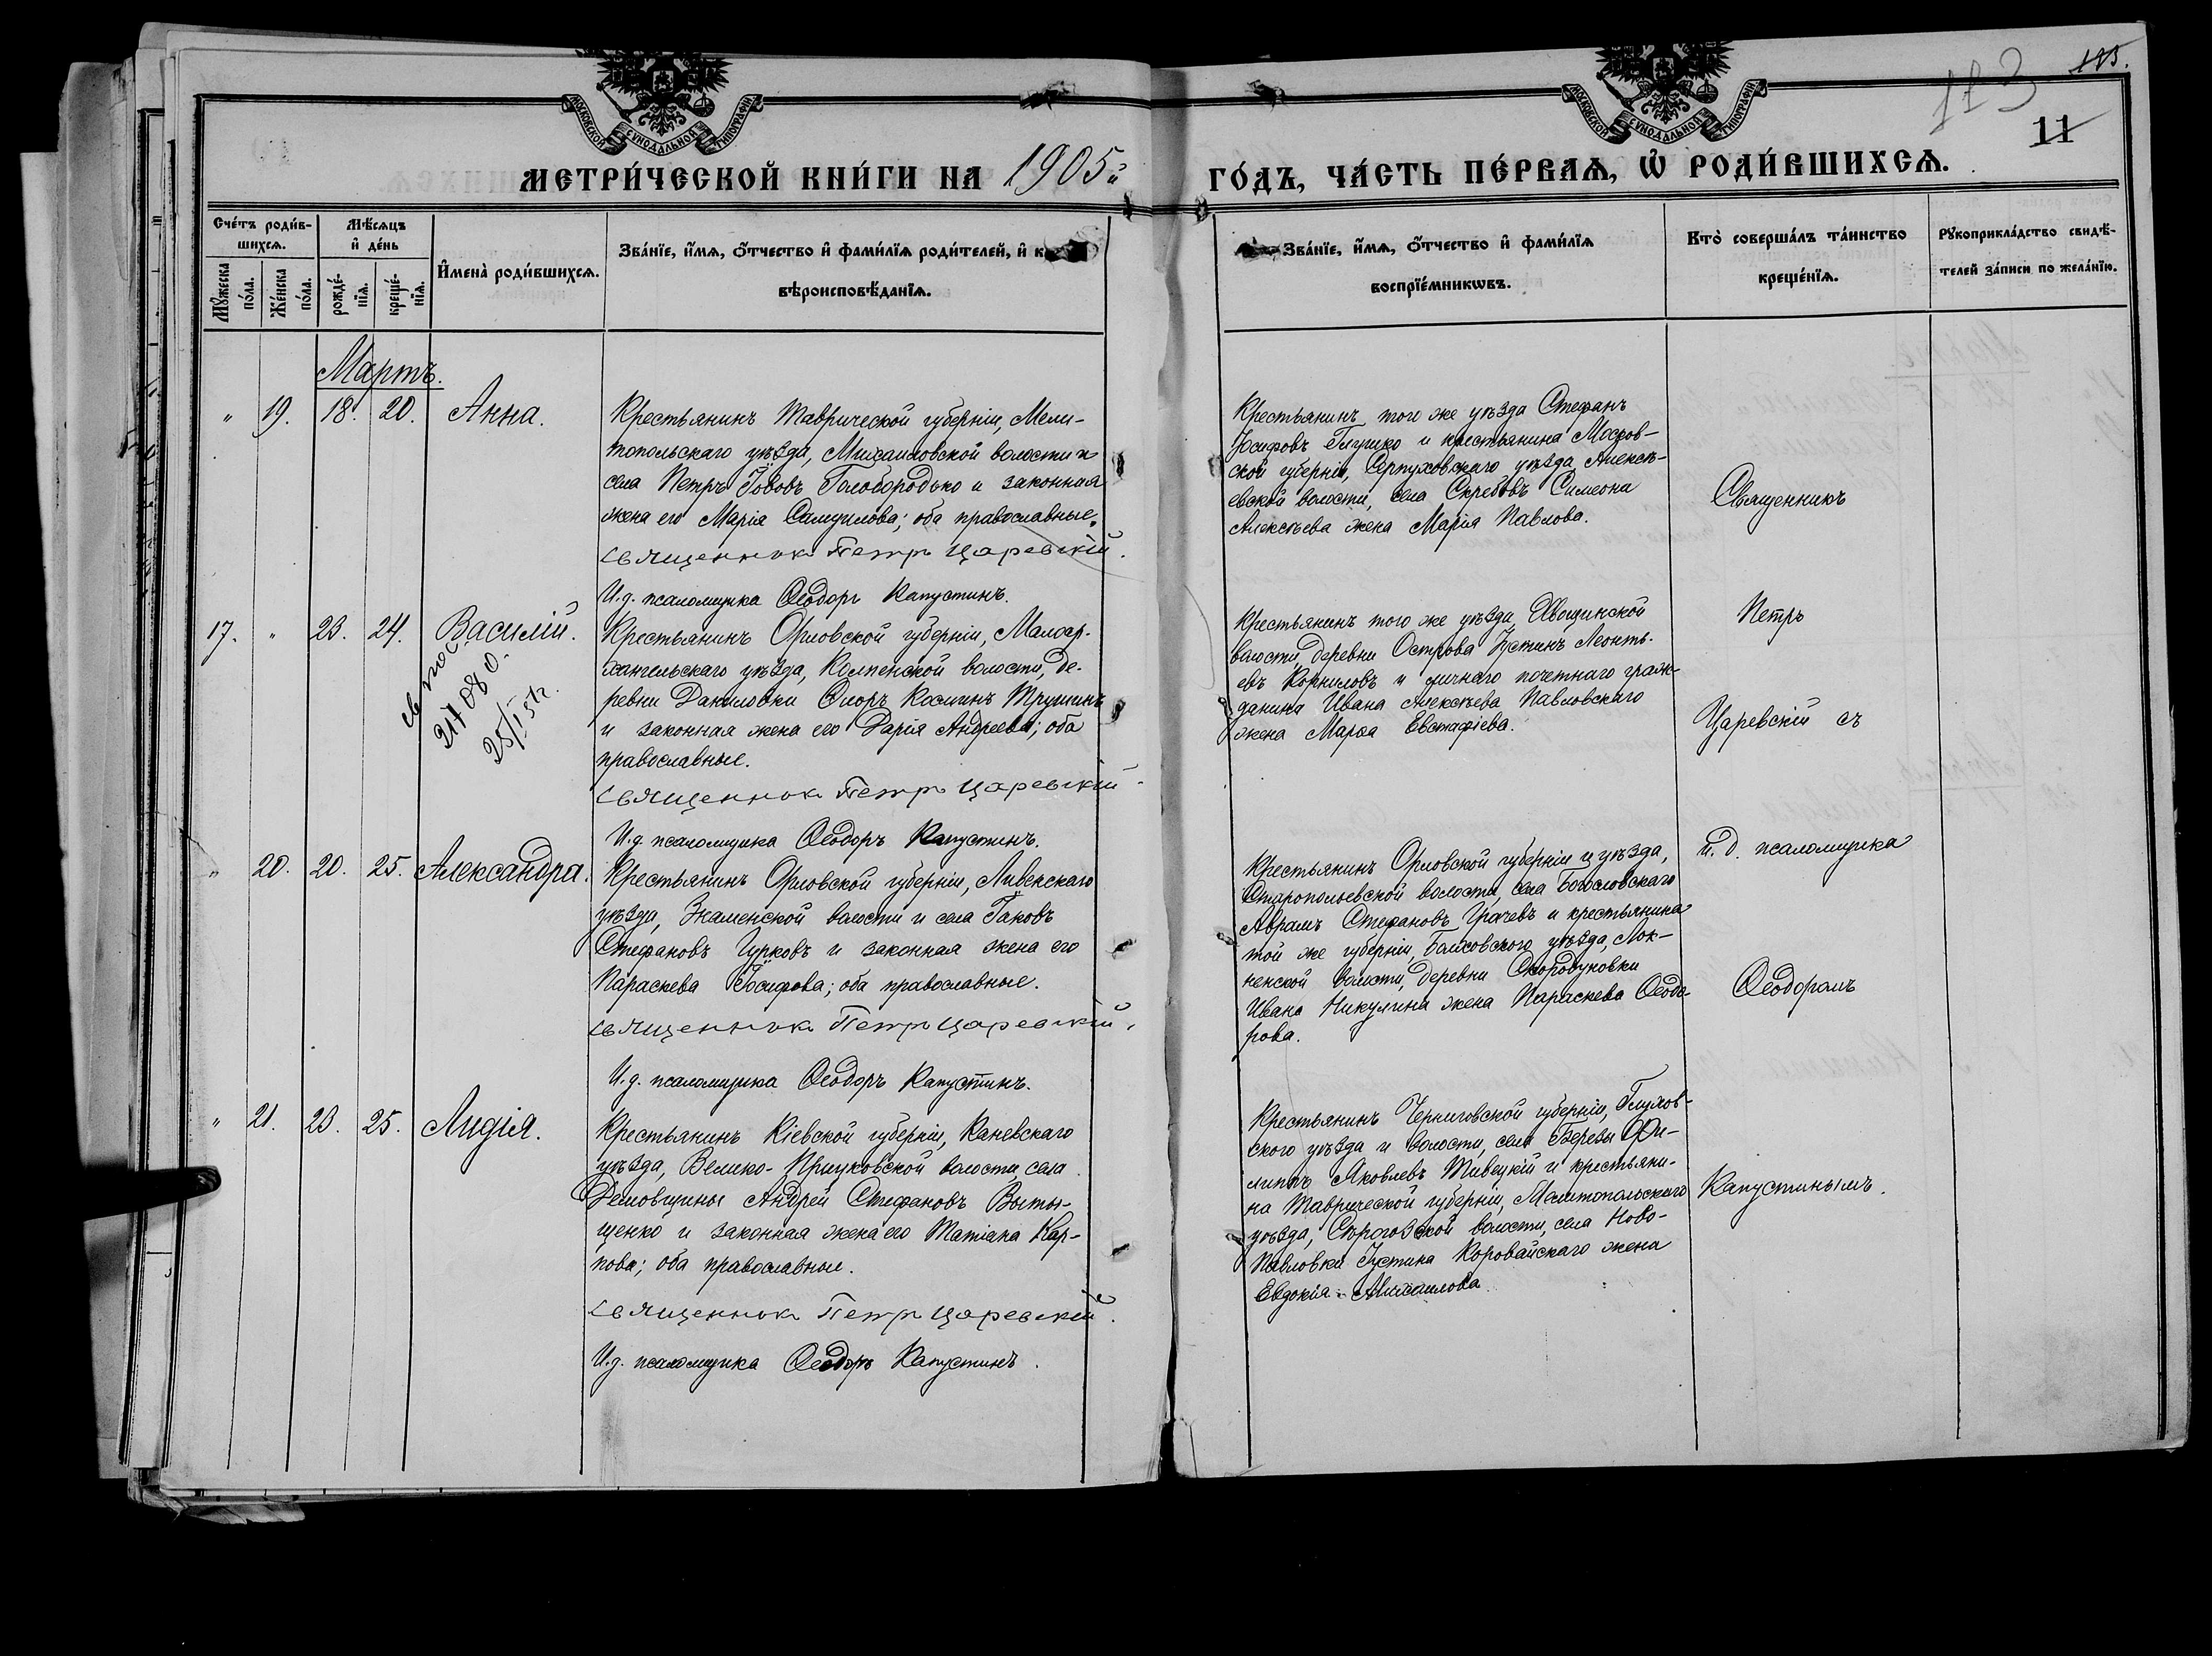 123.
113
11
МОСКОВСКОЙ СѴНОДАЛЬНОЙ ТИПОГРАФІИ
МОСКОВСКОЙ СѴНОДАЛЬНОЙ ТИПОГРАФІИ
МЕТРИ́ЧЕСКОЙ КНИ́ГИ НА 1905й ГО́ДЪ, ЧА́СТЬ ПЕ́РВАѦ, Ѿ РОДИ́ВШИХСѦ.
Сче́тъ роди́в-
шихсѧ.
Мꙋ́жеска по́ла.
Же́нска по́ла.
Мѣ́сѧцъ
и҆ де́нь
рожде́-нїѧ.
креще́-нїѧ.
И҆мена̀ роди́вшихсѧ.
Зва́нїе, и҆́мѧ, ѻ҆́тчество и҆ фами́лїѧ роди́телей, и҆ к
вѣроисповѣ́данїѧ.
Зва́нїе, и҆́мѧ, ѻ҆́тчество и҆ фами́лїѧ
воспрїе́мникѡвъ.
Кто̀ соверша́лъ та́инство
креще́нїѧ.
Рꙋкоприкла́дство свидѣ́-
телей за́писи по жела́нїю.
Мартъ.
" 19. 18. 20. Анна.
Крестьянинъ Таврической губерніи, Мели-
топольскаго уѣзда, Михаиловской волости и
села Петръ Іововъ Голобородько и законная
жена его Марія Самуилова; оба православные.
Священник Петр Царевскій.
И.д. псаломщика Ѳеодоръ Капустинъ.
Крестьянинъ того же уѣзда Стефанъ
Іосифовъ Глушко и крестьянина Москов-
ской губерніи, Серпуховскаго уѣзда, Алексѣ-
евской волости, села Скребовъ Симеона
Алексѣева жена Марія Павлова.
17. " 23. 24. Василій.
св пос.
217080.
25/I 51г.
Крестьянинъ Орловской губерніи, Малоар-
хангельскаго уѣзда, Колпенской волости, де-
ревни Даниловки Флоръ Космин Трушинъ
и законная жена его Дарія Андреева; оба
православные.
Священник Петр Царевскій
И.д. псаломщика Ѳеодоръ Капустинъ.
Крестьянинъ того же уѣзда,
волости, деревни Острова Іустинъ Леонть-
евъ Корниловъ и личнаго почетнаго граж-
данина Ивана Алексѣева Павловскаго
жена Марѳа Евстафіева.
" 20. 20. 25. Александра.
Крестьянинъ Орловской губерніи, Ливенскаго
уѣзда, Знаменской волости и села Іаковъ
Стефановъ Цурковъ и законная жена его
Параскева Іосифова; оба православные.
Священник Петр Царевскій.
И.д. псаломщика Ѳеодоръ Капустинъ.
Крестьянинъ Орловской губерніи и уѣзда,
Старопольевской волости, села Богословскаго
Аврамъ Стефановъ Грачевъ и крестьянина
той же губерніи, Болховского уѣзда, Лок-
ненской волости, деревни
Ивана Никулина жена Параскева Ѳеодо-
рова.
" 21. 23. 25. Лидія.
Крестьянинъ Кіевской губерніи, Каневскаго
уѣзда, Велико-Прицковской волости села
Демовщины Андрей Стефановъ Выты-
щенко и законная жена его Татіана Кар-
пова; оба православные.
Священник Петр Царевскій.
И.д. псаломщика Ѳеодоръ Капустинъ.
Крестьянинъ Черниговской губерніи, Глухов-
ского уѣзда и волости, села Березы Фи-
липпъ Яковлевъ Тивецкій и крестьяни-
на Таврической губерніи, Мелитопольскаго
уѣзда, волости, села Ново-
Павловки Іустина Коровайскаго жена
Евдокія Михаилова.
Священникъ
Петръ
Царевскій съ
и. д. псаломщика
Ѳеодоромъ
Капустинымъ.